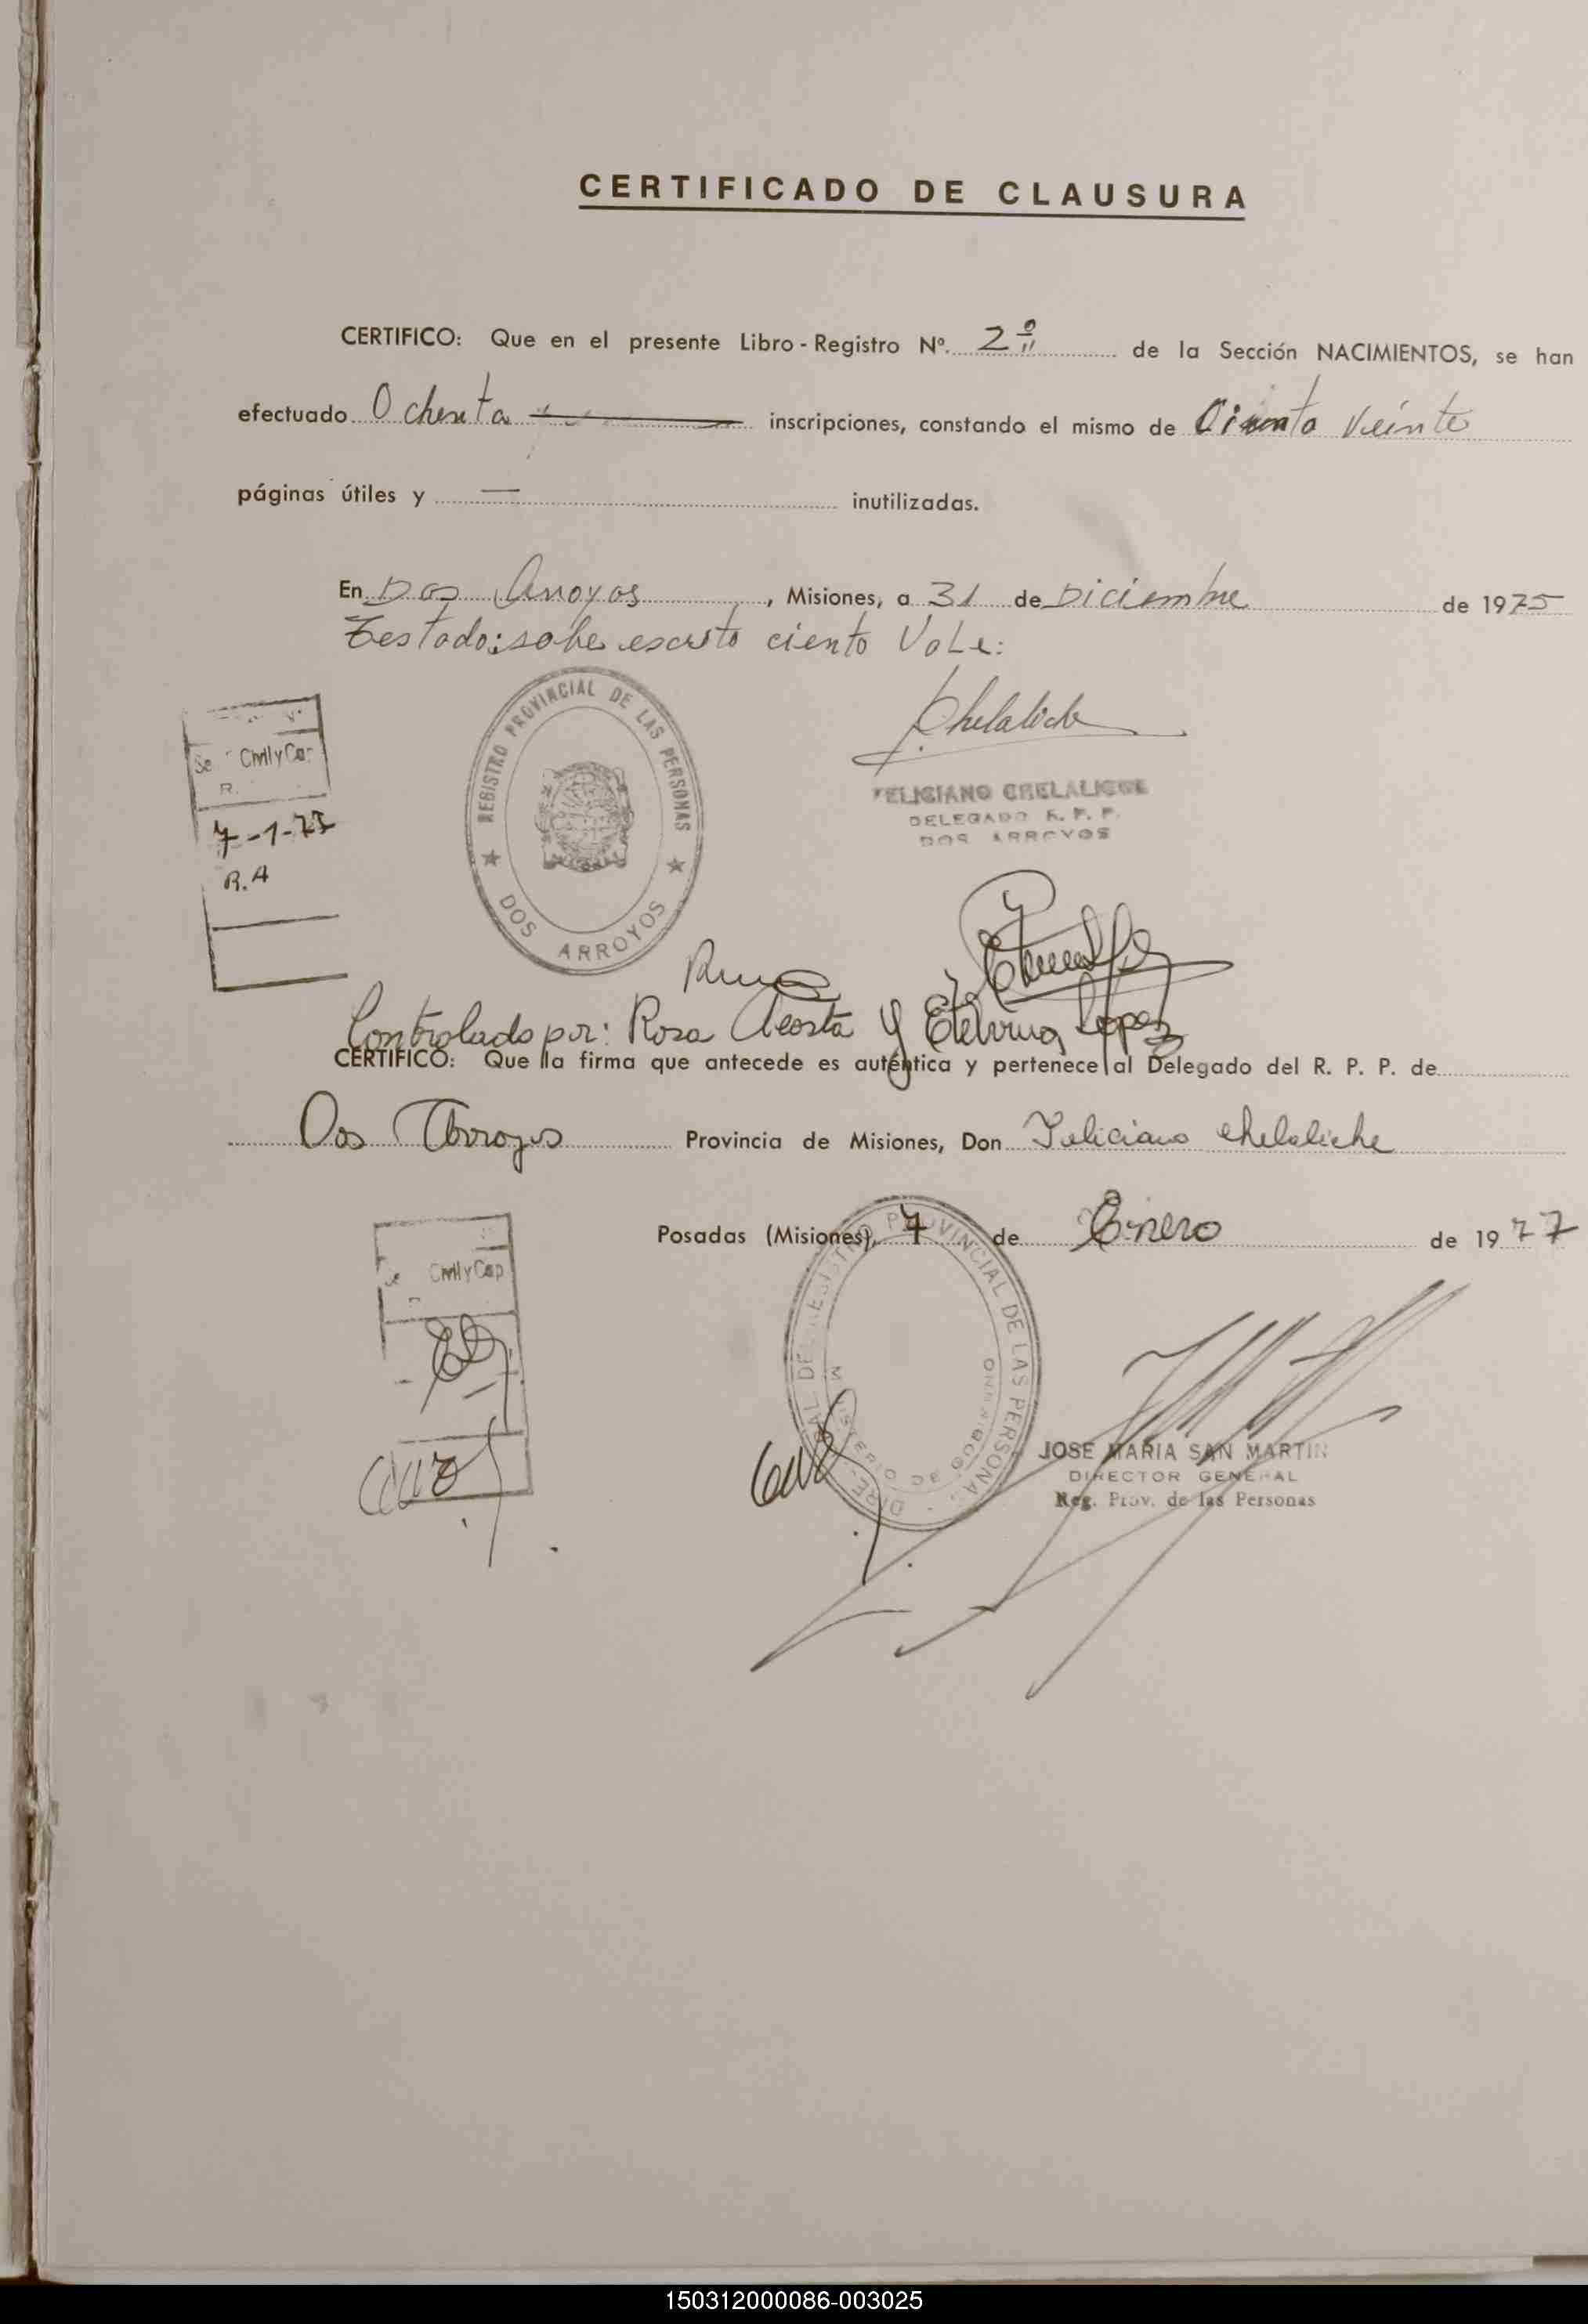 CERTIFICADO DE CLAUSURA
CERTIFICO: Que en el presente Libro - Registro Nº. 2º de la Sección NACIMIENTOS, se han
efectuado Ochenta inscripciones, constando el mismo de Ciento Veinte
páginas útiles y — inutilizadas.
En Dos Arroyos, Misiones, a 31 de Diciembre de 1975
Testado: sobre escrito ciento Vale:
Civil y Cap
R.
7-1-77
R.A
REGISTRO PROVINCIAL DE LAS PERSONAS
★ DOS ARROYOS ★
Chelaliche
FELICIANO CHELALICHE
DELEGADO R. P. P.
DOS ARROYOS
Controlado por: Rosa Acosta y Etelvina Lopez
CERTIFICO: Que la firma que antecede es auténtica y pertenece al Delegado del R. P. P. de
Dos Arroyos Provincia de Misiones, Don Feliciano Chelaliche
Posadas (Misiones), 7 de Enero de 1977
Civil y Cap
PROVINCIAL DE LAS PERSONAS
MINISTERIO DE GOBIERNO
JOSE MARIA SAN MARTIN
DIRECTOR GENERAL
Reg. Prov. de las Personas
150312000086-003025